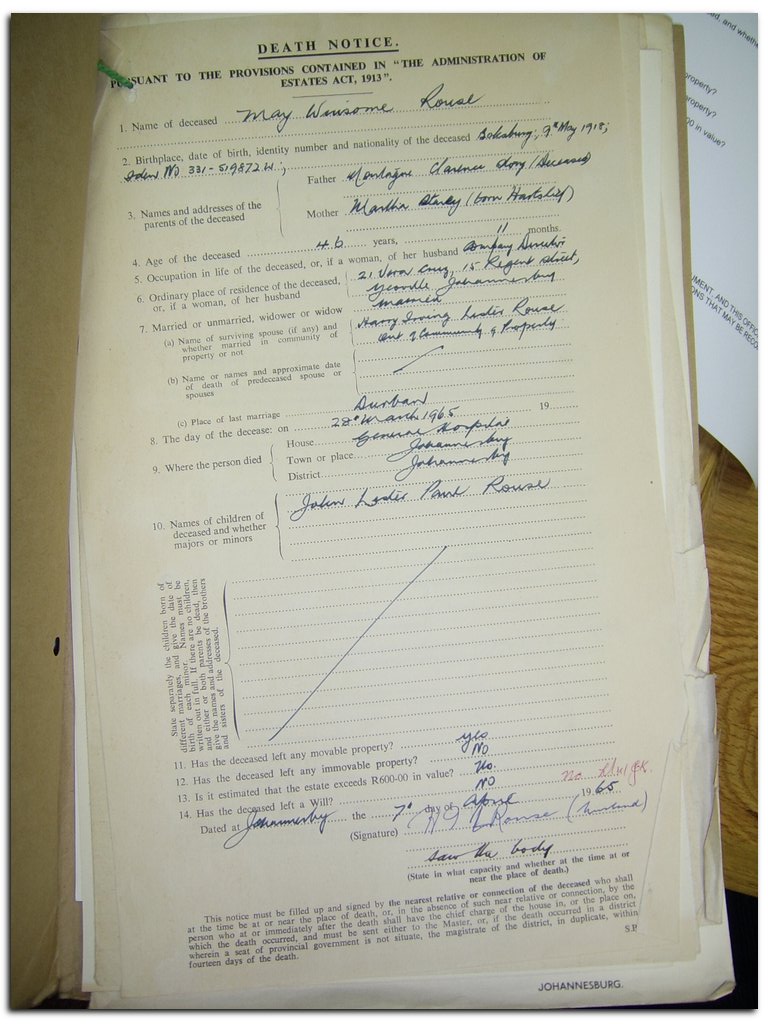 DEATH NOTICE.
PURSUANT TO THE PROVISIONS CONTAINED IN "THE ADMINISTRATION OF
ESTATES ACT, 1913".
1. Name of deceased May Winsome Rouse
2. Birthplace, date of birth, identity number and nationality of the deceased Boksburg; 9th May 1918;
Iden No 331-519872 W;
3. Names and addresses of the parents of the deceased
Father Montague Clarence (Deceased)
Mother Martha (born Hartslief)
4. Age of the deceased 46 years, 11 months.
5. Occupation in life of the deceased, or, if a woman, of her husband Company Director
6. Ordinary place of residence of the deceased, 21 Vera Cruz, 15 Regent Street,
or, if a woman, of her husband Yeoville Johannesburg
7. Married or unmarried, widower or widow Married
(a) Name of surviving spouse (if any) and Harry Irving Lester Rouse
whether married in community of Out of Community of Property
property or not
(b) Name or names and approximate date
of death of predeceased spouse or
spouses
(c) Place of last marriage Durban
8. The day of the decease: on 28th March 1965 19
9. Where the person died
House General Hospital
Town or place Johannesburg
District Johannesburg
10. Names of children of John Lester Paul Rouse
deceased and whether
majors or minors
State separately the children born of
different marriages, and give the date of
birth of each minor. Names must be
written out in full. If there are no children,
and either or both parents be dead, then
give the names and addresses of the brothers
and sisters of the deceased.
11. Has the deceased left any movable property? yes
12. Has the deceased left any immovable property? No
13. Is it estimated that the estate exceeds R600-00 in value? No.
14. Has the deceased left a Will? NO no
Dated at Johannesburg the 7th day of April 1965
(Signature) H I L Rouse (husband)
saw the body
(State in what capacity and whether at the time at or
near the place of death.)
This notice must be filled up and signed by the nearest relative or connection of the deceased who shall
at the time be at or near the place of death, or, in the absence of such near relative or connection, by the
person who at or immediately after the death shall have the chief charge of the house in, or the place on,
which the death occurred, and must be sent either to the Master, or, if the death occurred in a district
wherein a seat of provincial government is not situate, the magistrate of the district, in duplicate, within
fourteen days of the death.
S.P.
JOHANNESBURG.
ed, and whethe
property?
property?
00 in value?
UMENT, AND THIS OFFIC
ONS THAT MAY BE RECO